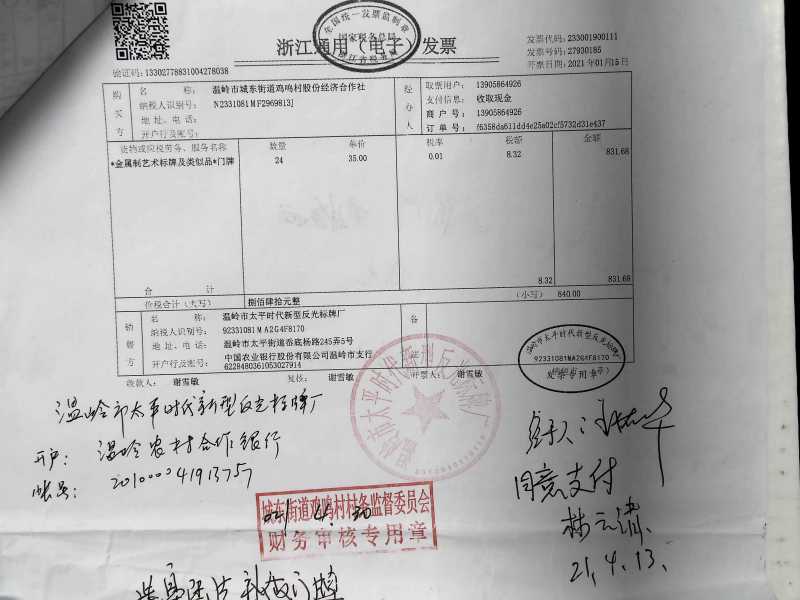 全国统一发票监制章
国家税务总局
浙江省税务局
浙江通用（电子）发票
发票代码: 233001900111
发票号码: 27930185
开票日期: 2021年01月15日
验证码: 13302778831004278038
购买方
名　　称: 温岭市城东街道鸡鸣村股份经济合作社
纳税人识别号: N2331081MF2969813J
地 址、电 话:
开户行及帐号:
经办人
取票用户: 13905864926
支付信息: 收取现金
商 户 号: 13905864926
订 单 号: f6358da611dd4e25a02cf5732d31e437
货物或应税劳务、服务名称 数量 单价 税率 税额 金额
*金属制艺术标牌及类似品*门牌 24 35.00 0.01 8.32 831.68
合　　计 8.32 831.68
价税合计（大写） 捌佰肆拾元整 （小写） 840.00
销售方
名　　称: 温岭市太平时代新型反光标牌厂
纳税人识别号: 92331081MA2G4F8170
地址、电话: 温岭市太平街道岙底杨路245弄5号
开户行及账号: 中国农业银行股份有限公司温岭市支行
6228480361053027914
备注
温岭市太平时代新型反光标牌厂
92331081MA2G4F8170
发票专用章
收款人: 谢雪敏 复核: 谢雪敏 开票人: 谢雪敏
温岭市太平时代新型反光标牌厂
温岭市太平时代新型反光标牌厂
开户: 温岭农村合作银行
帐号: 201000041913757
经手人:
同意支付
林云清
21.4.13.
城东街道鸡鸣村村务监督委员会
财务审核专用章